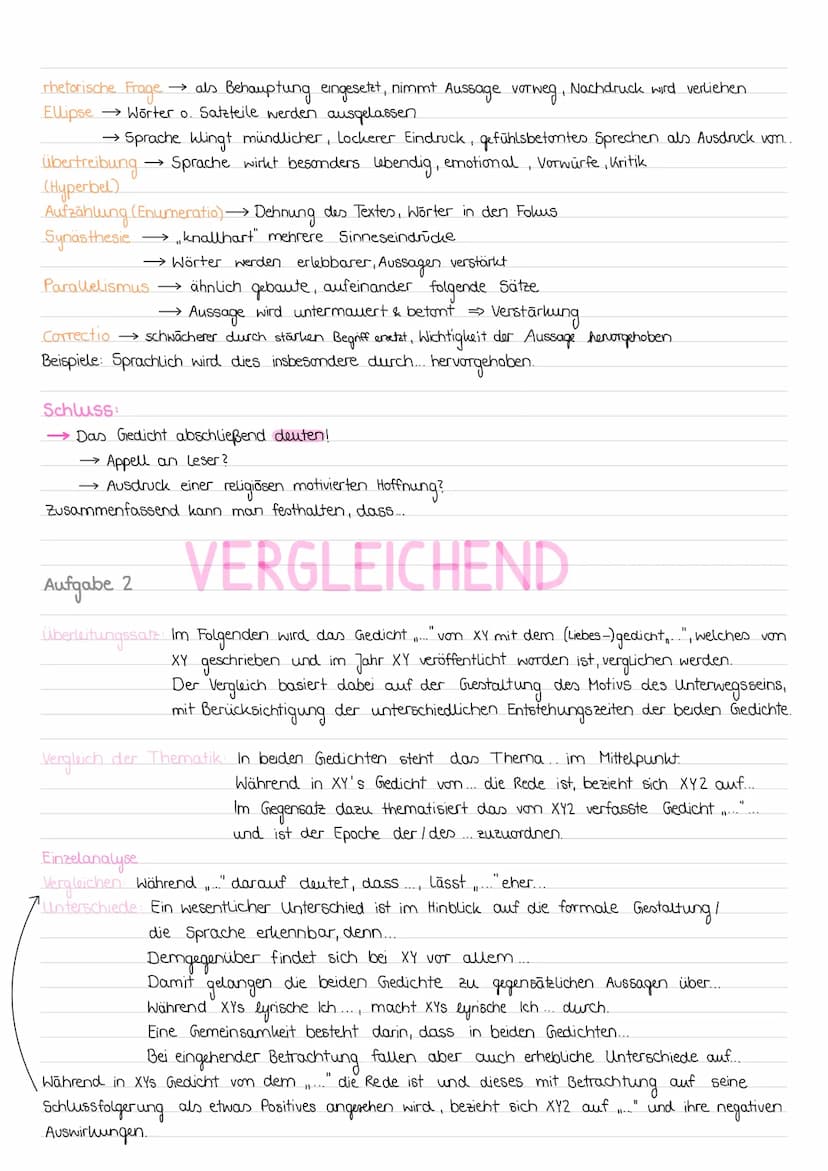 rhetorische Frage → als Behauptung eingesetzt, nimmt Aussage vorweg, Nachdruck wird verliehen
Ellipse → Wörter o. Satzteile werden ausgelassen
→ Sprache klingt mündlicher, lockerer Eindruck, gefühlsbetontes Sprechen als Ausdruck von..
Übertreibung → Sprache wirkt besonders lebendig, emotional, Vorwürfe, Kritik
(Hyperbel)
Aufzählung (Enumeratio) → Dehnung des Textes, Wörter in den Fokus
Synästhesie → „knallhart" mehrere Sinneseindrücke
→ Wörter werden erlebbarer, Aussagen verstärkt
Parallelismus → ähnlich gebaute, aufeinander folgende Sätze
→ Aussage wird untermauert & betont ⇒ Verstärkung
Correctio → schwächerer durch starken Begriff ersetzt, Wichtigkeit der Aussage hervorgehoben
Beispiele: Sprachlich wird dies insbesondere durch... hervorgehoben.
Schluss:
→ Das Gedicht abschließend deuten!
→ Appell an Leser?
→ Ausdruck einer religiösen motivierten Hoffnung?
Zusammenfassend kann man festhalten, dass...
VERGLEICHEND
Aufgabe 2
Überleitungssatz: Im Folgenden wird das Gedicht „..." von XY mit dem (Liebes-)gedicht„...", welches von
XY geschrieben und im Jahr XY veröffentlicht worden ist, verglichen werden.
Der Vergleich basiert dabei auf der Gestaltung des Motivs des Unterwegsseins,
mit Berücksichtigung der unterschiedlichen Entstehungszeiten der beiden Gedichte.
Vergleich der Thematik: In beiden Gedichten steht das Thema... im Mittelpunkt.
Während in XY's Gedicht von... die Rede ist, bezieht sich XY2 auf...
Im Gegensatz dazu thematisiert das von XY2 verfasste Gedicht „..."...
und ist der Epoche der/des ... zuzuordnen.
Einzelanalyse
Vergleichen: Während „..." darauf deutet, dass ..., lässt „..." eher...
Unterschiede: Ein wesentlicher Unterschied ist im Hinblick auf die formale Gestaltung/
die Sprache erkennbar, denn...
Demgegenüber findet sich bei XY vor allem...
Damit gelangen die beiden Gedichte zu gegensätzlichen Aussagen über...
Während XYs lyrische Ich ..., macht XYs lyrische Ich ... durch.
Eine Gemeinsamkeit besteht darin, dass in beiden Gedichten...
Bei eingehender Betrachtung fallen aber auch erhebliche Unterschiede auf...
Während in XYs Gedicht von dem „..." die Rede ist und dieses mit Betrachtung auf seine
Schlussfolgerung als etwas Positives angesehen wird, bezieht sich XY2 auf „..." und ihre negativen
Auswirkungen.